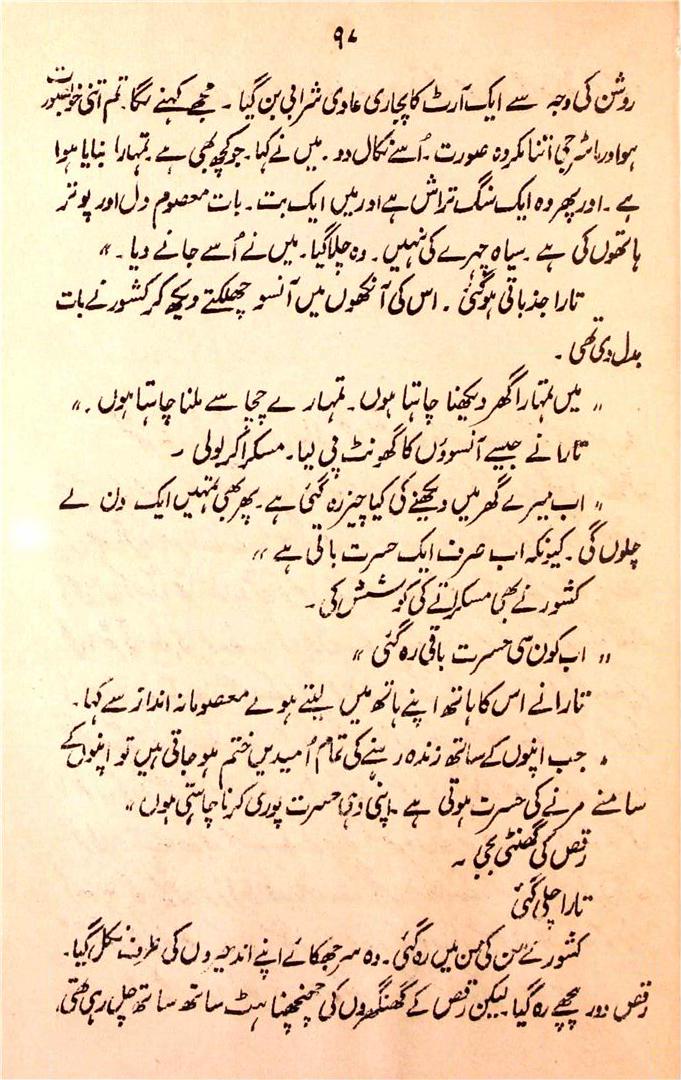 ۹۸
روشن کی وجہ سے ایک آرٹ کا پجاری عادی شرابی بن گیا ۔ مجھے کہنے لگا۔ تم اتنی خوبصورت
ہو اور ماسٹر جی اتنا مکروہ صورت ۔ اُسے نکال دو ۔ میں نے کہا۔ جو کچھ بھی ہے تمہارا بنایا ہوا
ہے ۔ اور پھر وہ ایک سنگ تراش ہے اور میں ایک بت ۔ بات معصوم دل اور پوتر
ہاتھوں کی ہے ۔ سیاہ چہرے کی نہیں ۔ وہ چلا گیا۔ میں نے اُسے جانے دیا ۔ "
تارا جذباتی ہو گئی ۔ اس کی آنکھوں میں آنسو چھلکتے دیکھ کر کشور نے بات
بدل دی تھی ۔
" میں تمہارا گھر دیکھنا چاہتا ہوں ۔ تمہارے چچا سے ملنا چاہتا ہوں ۔ "
تارا نے جیسے آنسوؤں کا گھونٹ پی لیا۔ مسکرا کر بولی ۔
" اب میرے گھر میں دیکھنے کی کیا چیز رہ گئی ہے ۔ پھر بھی تمہیں ایک دن لے
چلوں گی ۔ کیونکہ اب صرف ایک حسرت باقی ہے "
کشور نے بھی مسکرانے کی کوشش کی ۔
" اب کون سی حسرت باقی رہ گئی "
تارا نے اس کا ہاتھ اپنے ہاتھ میں لیتے ہوئے معصومانہ انداز سے کہا۔
" جب اپنوں کے ساتھ زندہ رہنے کی تمام اُمیدیں ختم ہو جاتی ہیں تو اپنوں کے
سامنے مرنے کی حسرت ہوتی ہے ۔ اپنی وہی حسرت پوری کرنا چاہتی ہوں "
رقص کی گھنٹی بجی ۔
تارا چلی گئی
کشور کے من کی من میں رہ گئی ۔ وہ سر جھکائے اپنے اندھیروں کی طرف نکل گیا۔
رقص دور پیچھے رہ گیا۔ لیکن رقص کے گھنگھروں کی چھنچھناہٹ ساتھ ساتھ چل رہی تھی۔